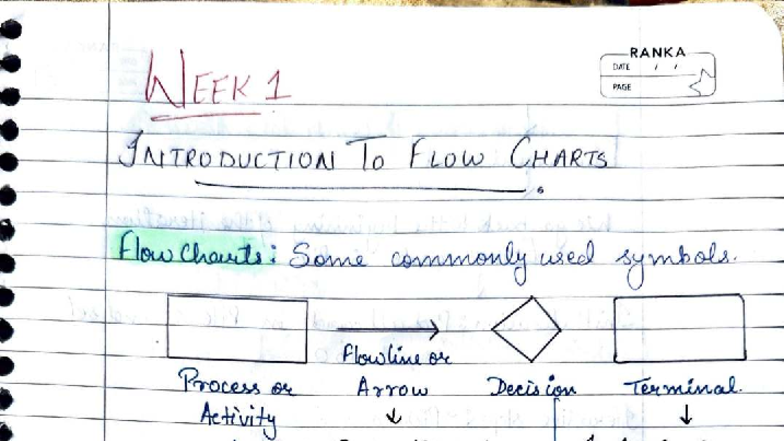 RANKA
DATE / /
PAGE
WEEK 1
INTRODUCTION TO FLOW CHARTS
Flow Charts: Some commonly used symbols.
Flowline or
Process or Arrow Decision Terminal.
Activity